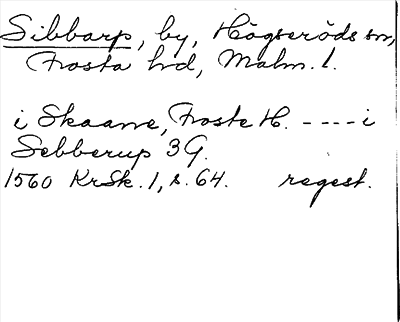 Sibbarp, by, Högseröds sn,
Frosta hd, Malm. l.
i Skaane, Froste H. ---- i
Sebberup 3 G.
1560 KrSk. 1, s. 64. regest.